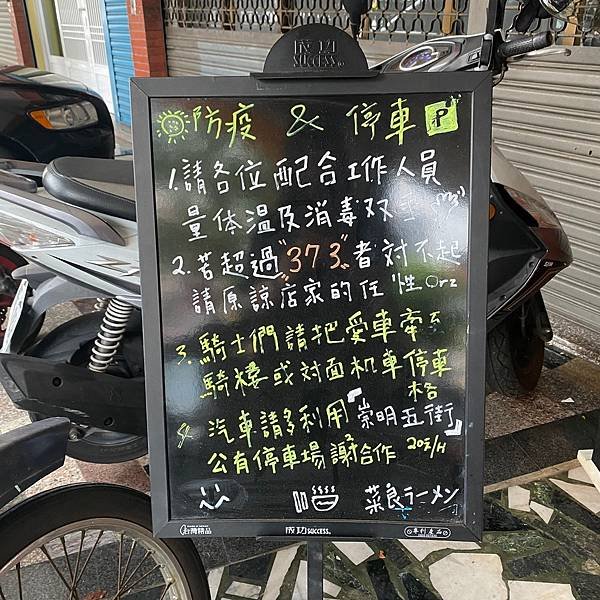 成功
SUCCESS®
防疫 & 停車 P
1.請各位配合工作人員
量体温及消毒双手
2.若超過"373"者対不起
請原諒店家的任性Orz
3.騎士們請把愛車牽至
騎楼或対面机車停車
格
4.汽車請多利用『崇明五街』
公有停車場謝2合作 20元/H
菜良ラーメン
台灣精品
成功 SUCCESS®
專利產品